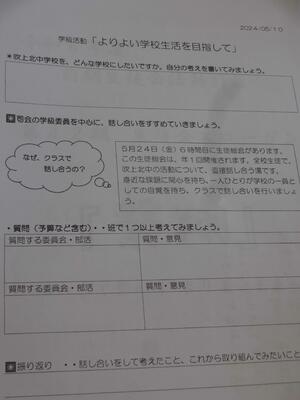 2024/05/10
学級活動「よりよい学校生活を目指して」
*吹上北中学校を、どんな学校にしたいですか。自分の考えを書いてみましょう。
司会の学級委員を中心に、話し合いをすすめていきましょう。
なぜ、クラスで
話し合うの？
5月24日（金）6時間目に生徒総会があります。
この生徒総会は、年1回開催されます。全校生徒で、
吹上北中の活動について、直接話し合う場です。
身近な課題に関心を持ち、一人ひとりが学校の一員と
しての自覚を持ち、クラスで話し合いを行いましょ
う。
・質問（予算など含む）・・班で1つ以上考えてみましょう。
質問する委員会・部活 質問・意見
質問する委員会・部活 質問・意見
振り返り ・・話し合いをして考えたこと、これから取り組んでみたいこと